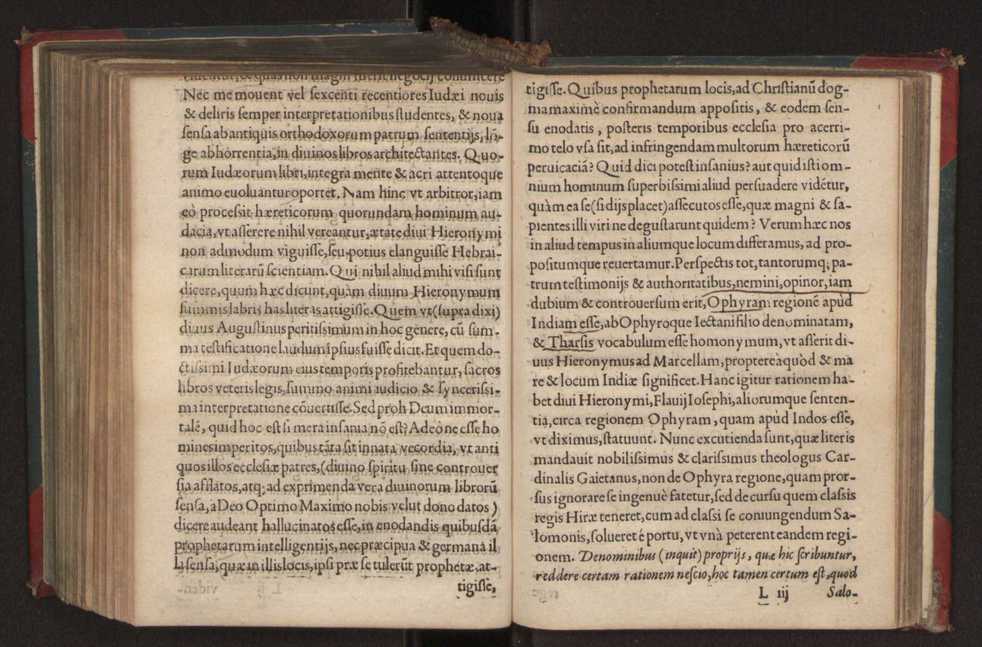 Nec me mouent vel sexcenti recentiores Iudæi nouis
& deliris semper interpretationibus studentes, & noua
sensa ab antiquis orthodoxorum patrum sententijs, lõ-
ge abhorrentia, in diuinos libros architectantes. Quo-
rum Iudæorum libri, integra mente & acri attentoque
animo euoluantur oportet. Nam hinc vt arbitror, iam
eò processit hæreticorum quorundam hominum au-
dacia, vt asserere nihil vereantur, ætate diui Hieronymi
non admodum viguisse, seu potius elanguisse Hebrai-
carum literarũ scientiam. Qui nihil aliud mihi visi sunt
dicere, quum hæc dicunt, quàm diuum Hieronymum
summis labris has literas attigisse. Quem vt (supra dixi)
diuus Augustinus peritissimum in hoc genere, cũ sum-
ma testificatione laudum ipsius fuisse dicit. Et quem do-
ctissimi Iudæorum eius temporis profitebantur, sacros
libros veteris legis, summo animi iudicio & synceris̃si-
ma interpretatione cõuertisse. Sed proh Deum immor-
talẽ, quid hoc est si mera insania nõ est? Adeò ne esse ho
mines imperitos, quibus tãta sit innata vecordia, vt anti
quos illos ecclesiæ patres, (diuino spiritu sine controuer
sia afflatos, atq; ad exprimenda vera diuinorum librorũ
sensa, a Deo Optimo Maximo nobis velut dono datos)
dicere audeant hallucinatos esse, in enodandis quibusdã
prophetarum intelligentijs, nec præcipua & germana il
la sensa, quæ in illis locis, ipsi præ se tulerũt prophetæ, at-
tigisse,
tigisse. Quibus prophetarum locis, ad Christianũ dog-
ma maximè confirmandum appositis, & eodem sen-
su enodatis, posteris temporibus ecclesia pro acerri-
mo telo vsa sit, ad infringendam multorum hæreticorũ
peruicaciã? Quid dici potest insanius? aut quid isti om-
nium hominum superbissimi aliud persuadere vidẽtur,
quàm ea se (si dijs placet) assecutos esse, quæ magni & sa-
pientes illi viri ne degustarunt quidem? Verum hæc nos
in aliud tempus in aliumque locum differamus, ad pro-
positumque reuertamur. Perspectis tot, tantorumq; pa-
trum testimonijs & authoritatibus, nemini, opinor, iam
dubium & controuersum erit, Ophyram regionẽ apud
Indiam esse, ab Ophyroque Iectani filio denominatam,
& Tharsis vocabulum esse homonymum, vt asserit di-
uus Hieronymus ad Marcellam, proptereàquòd & ma
re & locum Indiæ significet. Hanc igitur rationem ha-
bet diui Hieronymi, Flauij Iosephi, aliorumque senten-
tia, circa regionem Ophyram, quam apud Indos esse,
vt diximus, statuunt. Nunc excutienda sunt, quæ literis
mandauit nobilissimus & clarissimus theologus Car-
dinalis Gaietanus, non de Ophyra regione, quam pror-
sus ignorare se ingenuè fatetur, sed de cursu quem classis
regis Hiræ teneret, cum ad classi se coniungendum Sa-
lomonis, solueret è portu, vt vnà peterent eandem regi-
onem. Denominibus (inquit) proprijs, quæ hic scribuntur,
reddere certam rationem nescio, hoc tamen certum est, quòd
L iij Salo-